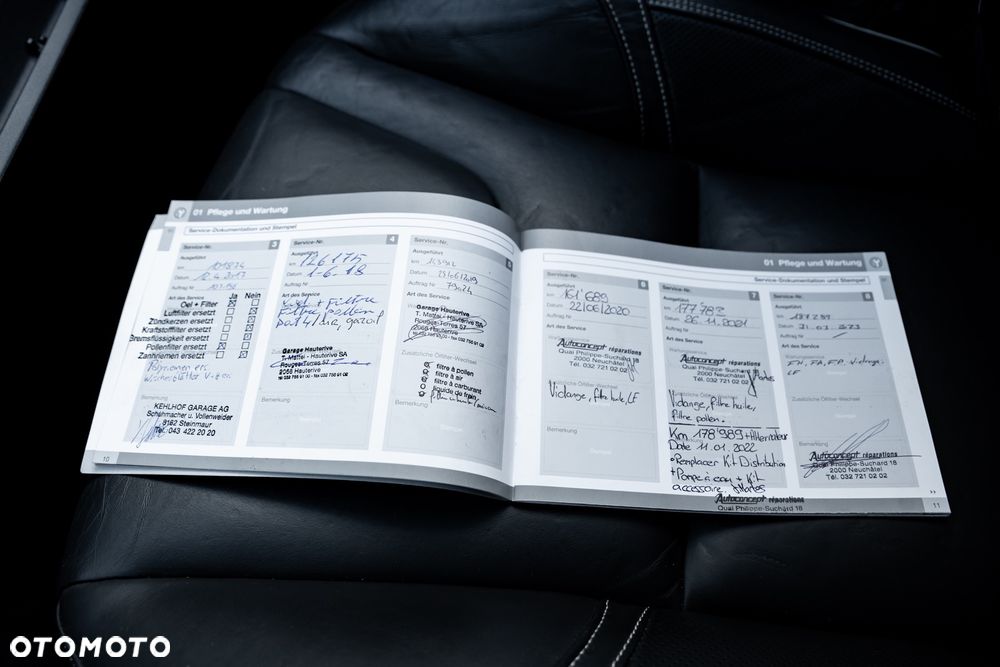 01 Pflege und Wartung
Service-Dokumentation und Stempel
Service-Nr. 3
Ausgeführt
km
Datum 12.4.2017
Auftrag Nr
Art des Service Ja Nein
Oel + Filter
Luftfilter ersetzt
Zündkerzen ersetzt
Kraftstoffilter ersetzt
Bremsflüssigkeit ersetzt
Pollenfilter ersetzt
Zahnriemen ersetzt
Bemerkung
KEHLHOF GARAGE AG
Schuhmacher u. Vollenweider
8162 Steinmaur
Tel. 043 422 20 20
10
Service-Nr. 4
Ausgeführt
km 126175
Datum 1-6-18
Auftrag Nr
Art des Service
Filtre pollen
Garage Hauterive
T. Mattei - Hauterive SA
Rouges-Terres 57
2068 Hauterive
Bemerkung
Service-Nr. 5
Ausgeführt
km
Datum
Auftrag Nr
Art des Service
Garage Hauterive
T. Mattei - Hauterive SA
Rouges-Terres 57
2068 Hauterive
Zusätzliche Ölfilter-Wechsel
filtre à pollen
filtre à air
filtre à carburant
liquide de frein
Bemerkung
01 Pflege und Wartung
Service-Dokumentation und Stempel
Service-Nr. 6
Ausgeführt
km 161'689
Datum 22/06/2020
Auftrag Nr
Art des Service
Autoconcept réparations
Quai Philippe-Suchard 18
2000 Neuchâtel
Tél. 032 721 02 02
Zusätzliche Ölfilter-Wechsel
Vidange, filtre huile, LF
Bemerkung
Service-Nr. 7
Ausgeführt
km 177'783
Datum 26.11.2021
Auftrag Nr
Art des Service
Autoconcept réparations
Quai Philippe-Suchard 18
2000 Neuchâtel
Tél. 032 721 02 02
Vidange, filtre huile,
filtre pollen.
Km 178'989 + Alternateur
Date 11.01.2022
• Remplacer Kit Distribution
+ Pompe à eau + Kit
accessoire
Autoconcept réparations
Quai Philippe-Suchard 18
Service-Nr. 8
Ausgeführt
km
Datum 31.03
Auftrag Nr
Art des Service
FH, FA, FP, Vidange.
LF
Zusätzliche Ölfilter-Wechsel
Bemerkung
Autoconcept réparations
Quai Philippe-Suchard 18
2000 Neuchâtel
Tél. 032 721 02 02
11
OTOMOTO